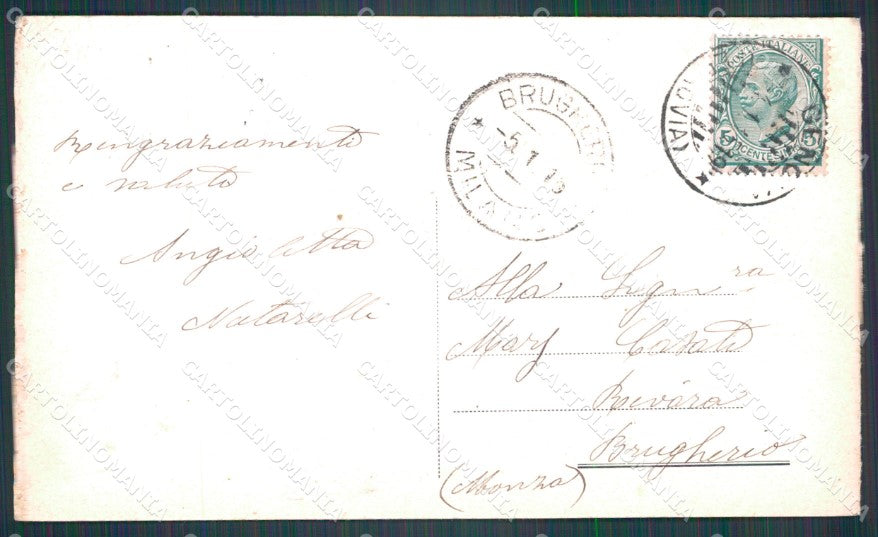 Ringraziamente
e saluto
Angioletta
Natarelli
BRUGHERIO
-5.1.13
* MILANO
POSTE ITALIANE
5 CENTESIMI 5
GENOVA
Alla Signra
Mary Casati
Rovára
Brugherio
(Monza)
CARTOLINOMANIA